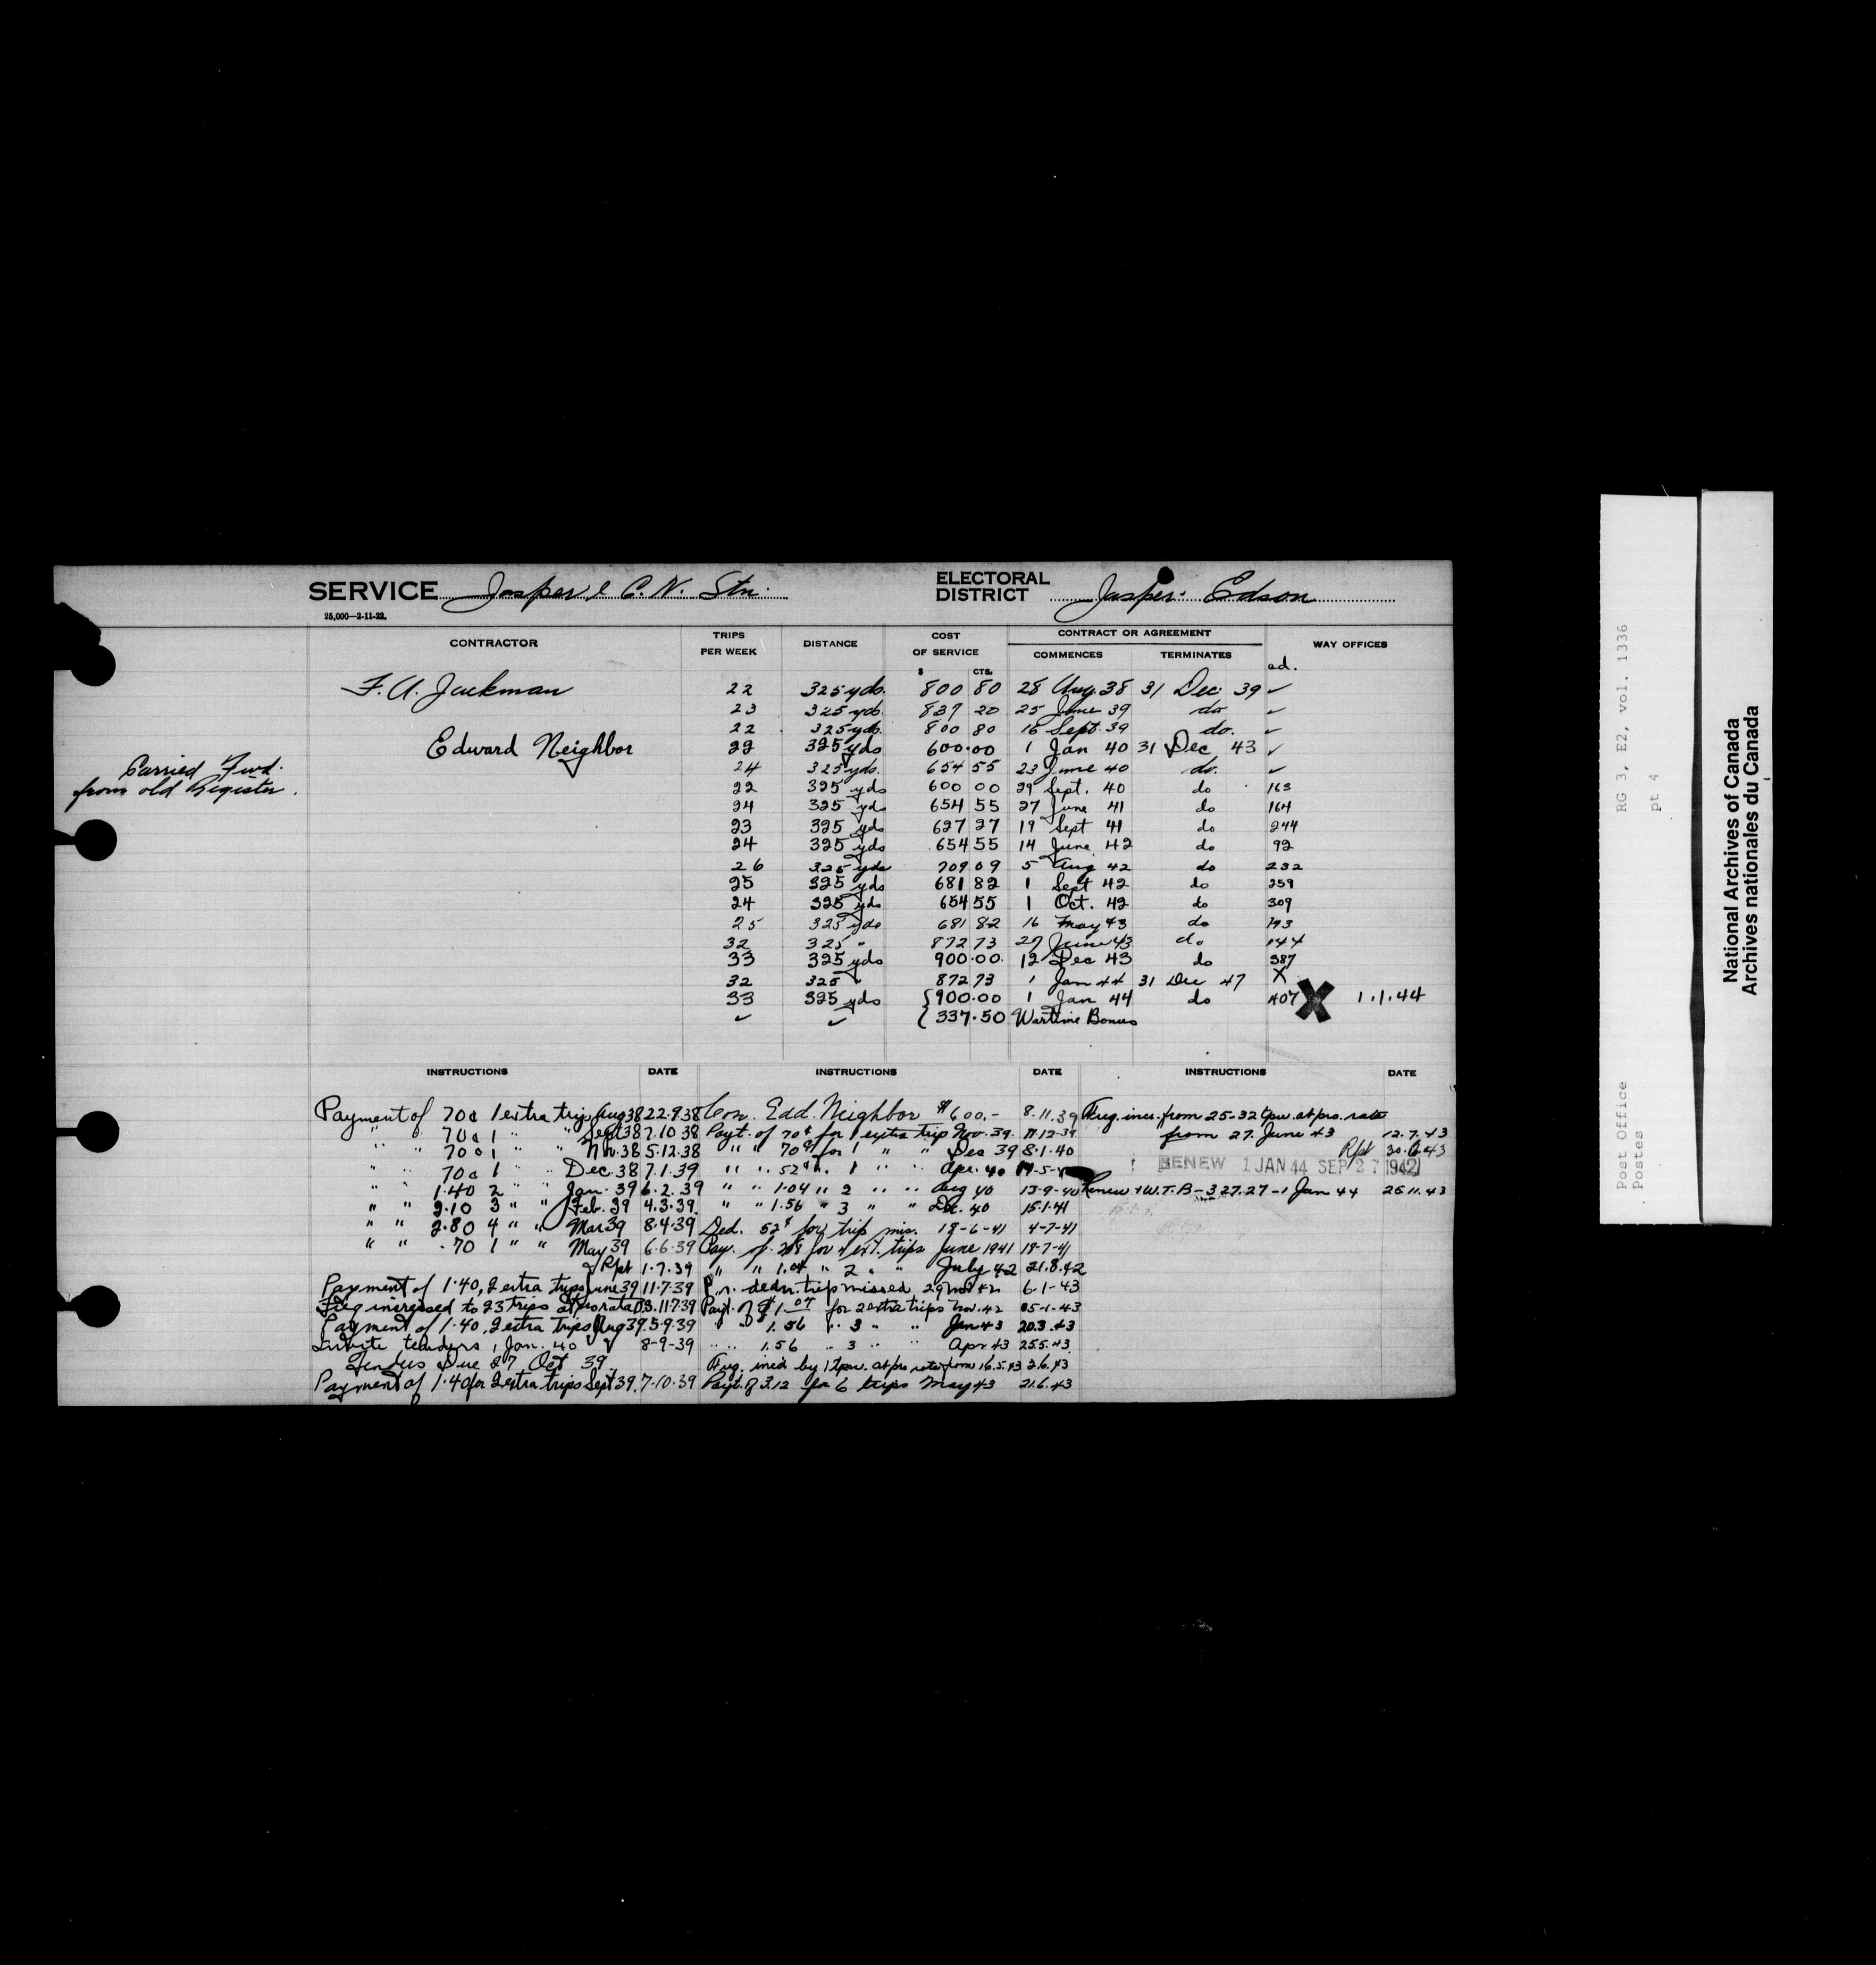 SERVICE Jasper & C. N. Stn.
ELECTORAL DISTRICT Jasper Edson
25,000—2-11-22.
CONTRACTOR TRIPS PER WEEK DISTANCE COST OF SERVICE CONTRACT OR AGREEMENT WAY OFFICES
COMMENCES TERMINATES
$ CTS. ad.
F. A. Jackman 22 325 yds. 800 80 28 Aug. 38 31 Dec. 39 ✓
23 325 yds. 837 20 25 June 39 do ✓
22 325 yds. 800 80 16 Sept. 39 do. ✓
Edward Neighbor 22 325 yds 600.00 1 Jan 40 31 Dec 43 ✓
Carried Fwd. from old Register.
24 325 yds. 654 55 23 June 40 do. ✓
22 325 yds 600 00 29 Sept. 40 do 163
24 325 yds 654 55 27 June 41 do 164
23 325 yds 627 27 19 Sept 41 do 244
24 325 yds 654 55 14 June 42 do 92
26 325 yds 709 09 5 Aug 42 do 232
25 325 yds 681 82 1 Sept 42 do 259
24 325 yds 654 55 1 Oct. 42 do 309
25 325 yds 681 82 16 May 43 do
32 325 " 872 73 27 June 43 do 144
33 325 yds 900.00. 12 Dec 43 do 387
32 325 " 872 73 1 Jan 44 31 Dec 47 X
33 325 yds {900.00 1 Jan 44 do 407 X 1.1.44
✓ ✓ {337.50 Wartime Bonus
INSTRUCTIONS DATE INSTRUCTIONS DATE INSTRUCTIONS DATE
Payment of 70¢ 1 extra trip Aug 38 22.9.38
" " 70¢ 1 " " Sept 38 7.10.38
" " 70¢ 1 " " Nov. 38 5.12.38
" " 70¢ 1 " " Dec. 38 7.1.39
" " 1.40 2 " " Jan. 39 6.2.39
" " 2.10 3 " " Feb. 39 4.3.39.
" " 2.80 4 " " Mar 39 8.4.39
" " .70 1 " " May 39 6.6.39
Rpt 1.7.39
Payment of 1.40, 2 extra trips June 39 11.7.39
Freq increased to 23 trips at pro rata 11.7.39
Payment of 1.40, 2 extra trips Aug 39 5.9.39
Invite tenders 1 Jan. 40 8-9-39
Tenders Due 27 Oct 39.
Payment of 1.40 for 2 extra trips Sept 39. 7.10.39
Con. Edd. Neighbor $600.- 8.11.39
Payt. of 70¢ for 1 extra trip Nov. 39. 11.12.39
" " 70¢ for 1 " " Dec 39 8.1.40
" " 52¢ " 1 " " Apr. 40
" " 1.04 " 2 " " Aug 40 13-9-40
" " 1.56 " 3 " " Dec. 40 15.1.41
Ded. 52¢ for trip mis. 18-6-41 4-7-41
Pay. of 2.08 for 4 ext. trips June 1941 18-7-41
" " 1.04 " 2 " " July 42 21.8.42
dedn. trip missed 29 Nov 42 6.1-43
Payt. of $1.04 for 2 extra trips Nov. 42 15-1-43
" " 1.56 " 3 " " Jan 43 20.3.43
" " 1.56 " 3 " " Apr 43 25.5.43.
Freq. incd by 1 tpw. at pro rata from 16.5.43 2.6.43
Payt. of 3.12 for 6 trips May 43 21.6.43
Freq. incr. from 25-32 tpw. at pro. rata
from 27. June 43 12.7.43
Rpt 30.6.43
RENEW 1 JAN 44 SEP 27 1942
Renew + W.T.B - 327.27 - 1 Jan 44 26.11.43
RG 3, E2, vol. 1336
pt 4
Post Office
Postes
National Archives of Canada
Archives nationales du Canada